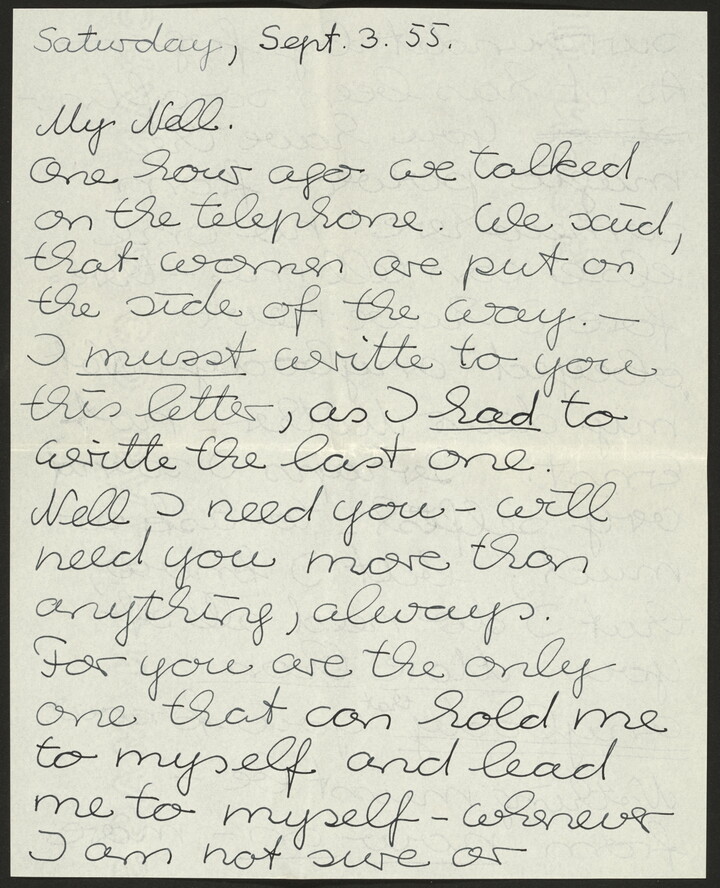 Saturday, Sept. 3. 55.
My Nell.
One hour ago we talked
on the telephone. We said,
that women are put on
the side of the way. –
I musst writte to you
this letter, as I had to
writte the last one.
Nell I need you – will
need you more than
anything, always.
For you are the only
one that can hold me
to myself and lead
me to myself – whenever
I am not sure or